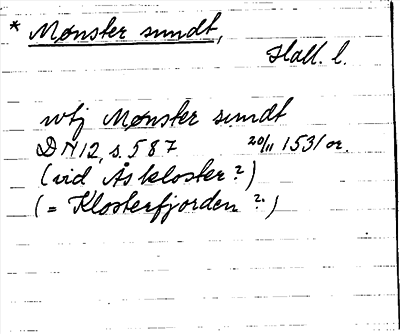 * Mønster sundt,
Hall. l.
wtj Mønster sundt
DN 12, s. 587 20/11 1531 or.
(vid Åskloster?)
(= Klosterfjorden?)